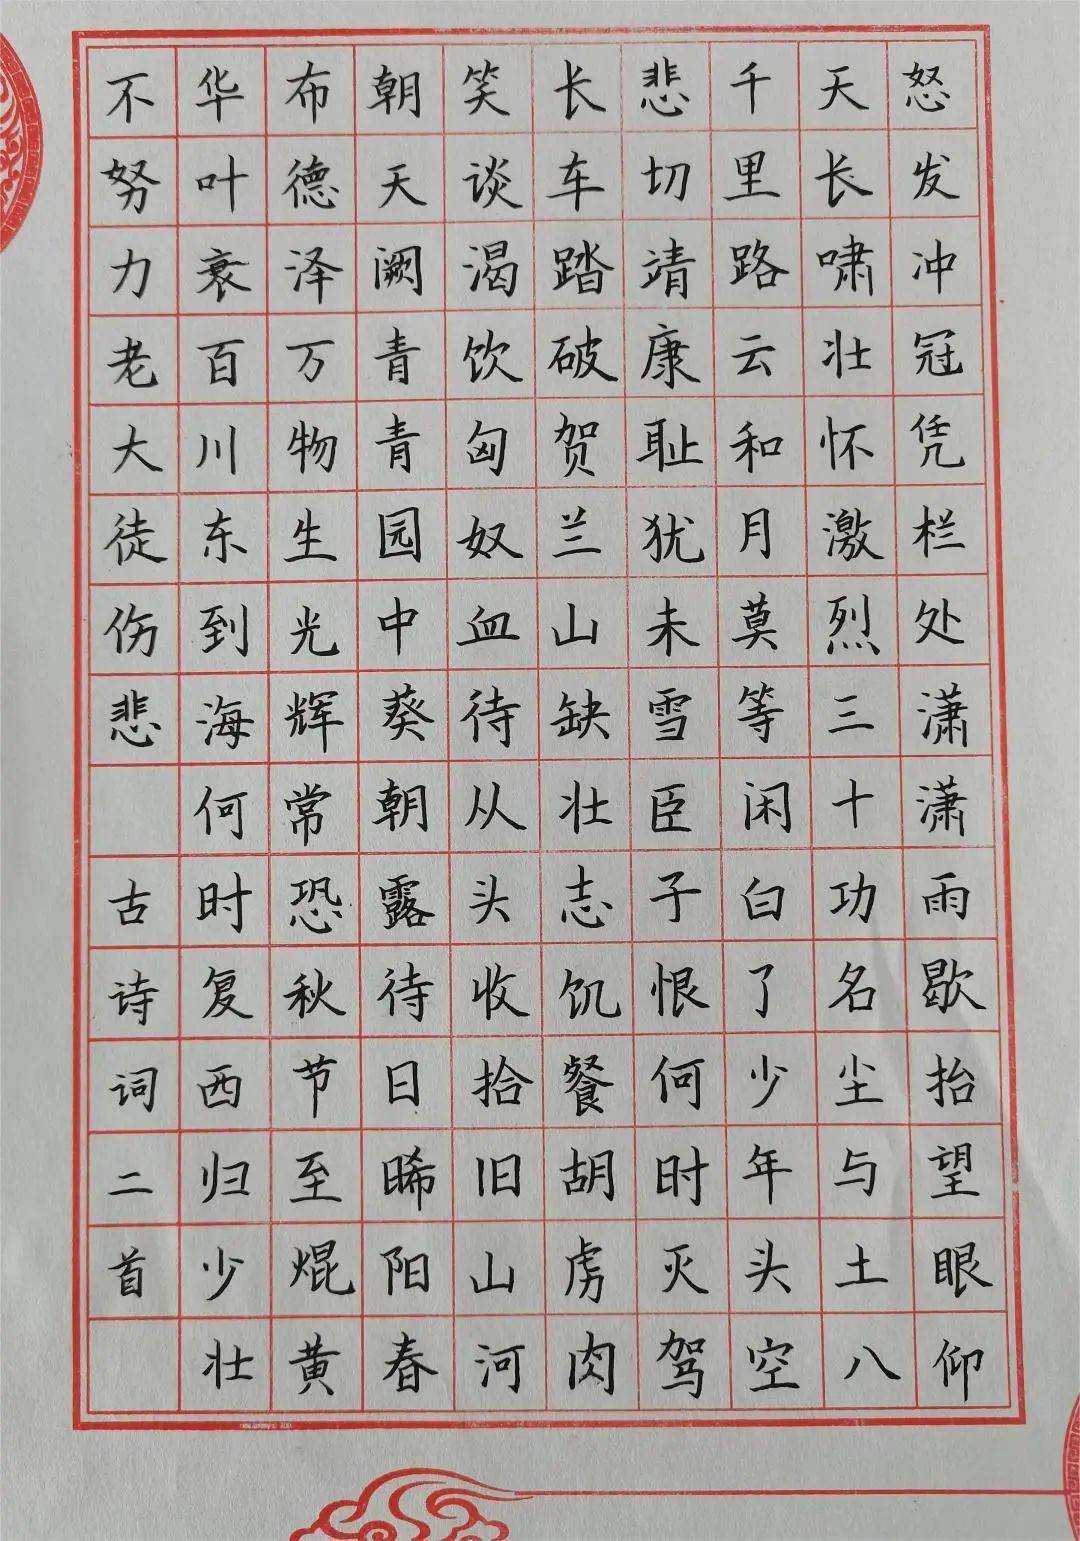 怒发冲冠凭栏处潇潇雨歇抬望眼仰
天长啸壮怀激烈三十功名尘与土八
千里路云和月莫等闲白了少年头空
悲切靖康耻犹未雪臣子恨何时灭驾
长车踏破贺兰山缺壮志饥餐胡虏肉
笑谈渴饮匈奴血待从头收拾旧山河
朝天阙青青园中葵朝露待日晞阳春
布德泽万物生光辉常恐秋节至焜黄
华叶衰百川东到海何时复西归少壮
不努力老大徒伤悲 古诗词二首